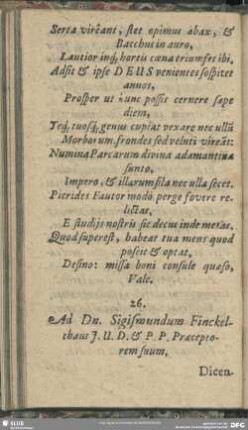 Serta virêant, stet opimus abax, &
Bacchus in auro,
Lautior inq́; horreis cana triumfet ibi,
Adsit & ipse DEUS venientes sospitet
annos,
Prosper ut hunc possis cernere sæpe
diem,
Teq́; tuosq́; genus cupiat vexare nec ullũ
Morborum, frondes sed veluti vireãt:
Numina Parcarum divina adamantina
sunto,
Impero, & illarum fila nec ulla secet.
Pierides Fautor modò perge fovere re-
lictas,
E studijs nostris sic decus inde metas.
Quod superest, habeat tua mens quod
poscit & optat,
Desino: missa boni consule quæso,
Vale.
26.
Ad Dn. Sigismundum Finckel-
thaus J. U. D. & P. P. Præcepto-
rem suum.
Dicen-